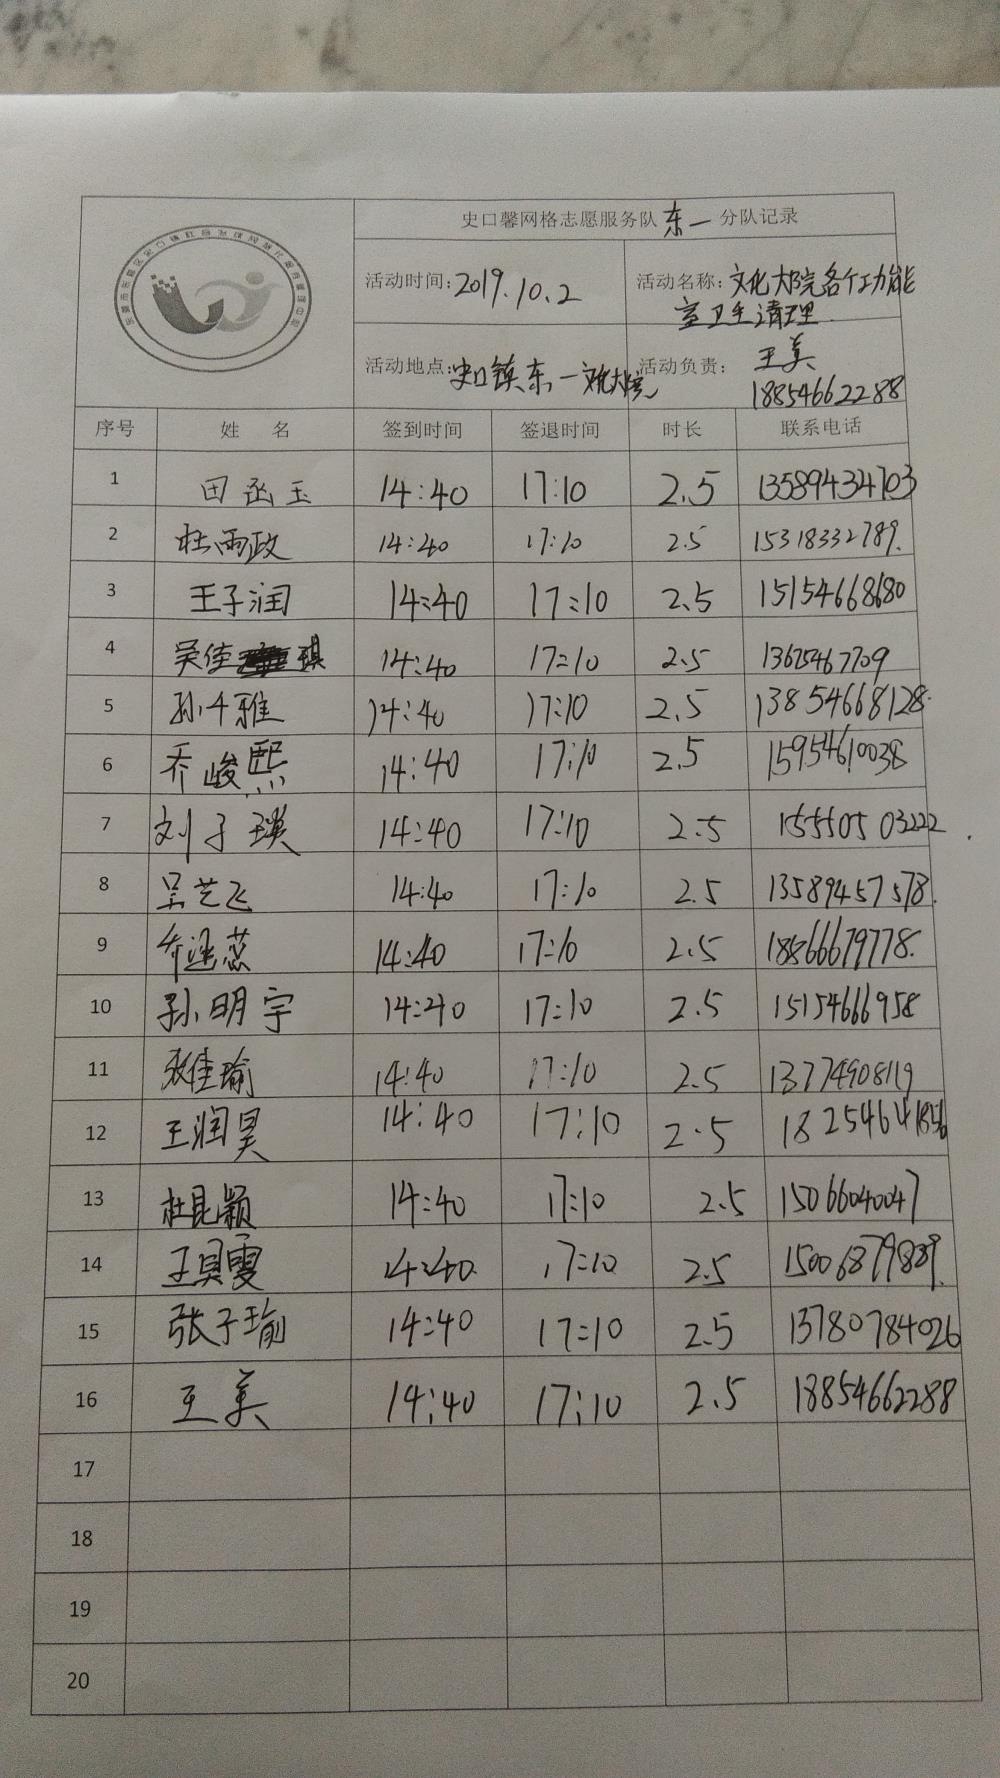 史口馨网格志愿服务队东一分队记录
活动时间:2019.10.2
活动名称:文化大院各个功能
室卫生清理
活动地点:史口镇东一文化大院
活动负责:王美
18854662288
序号 姓 名 签到时间 签退时间 时长 联系电话
1 田函玉 14:40 17:10 2.5 13589434703
2 杜雨政 14:40 17:10 2.5 15318332789.
3 王子润 14:40 17:10 2.5 15154668680
4 吴佳琪 14:40 17:10 2.5 13625467709
5 孙千雅 14:40 17:10 2.5 13854668128
6 乔峻熙 14:40 17:10 2.5 15954610038
7 刘子瑛 14:40 17:10 2.5 15550503222
8 吴艺飞 14:40 17:10 2.5 13589457578.
9 14:40 17:10 2.5 18866679778.
10 孙明宇 14:40 17:10 2.5 15154666958
11 张佳瑜 14:40 17:10 2.5 13774908119
12 王润昊 14:40 17:10 2.5 18254641856
13 杜昆颖 14:40 17:10 2.5 15066040047
14 王贝雯 14:40 17:10 2.5 15006879839.
15 张子瑜 14:40 17:10 2.5 13780784026
16 王美 14:40 17:10 2.5 18854662288
17
18
19
20